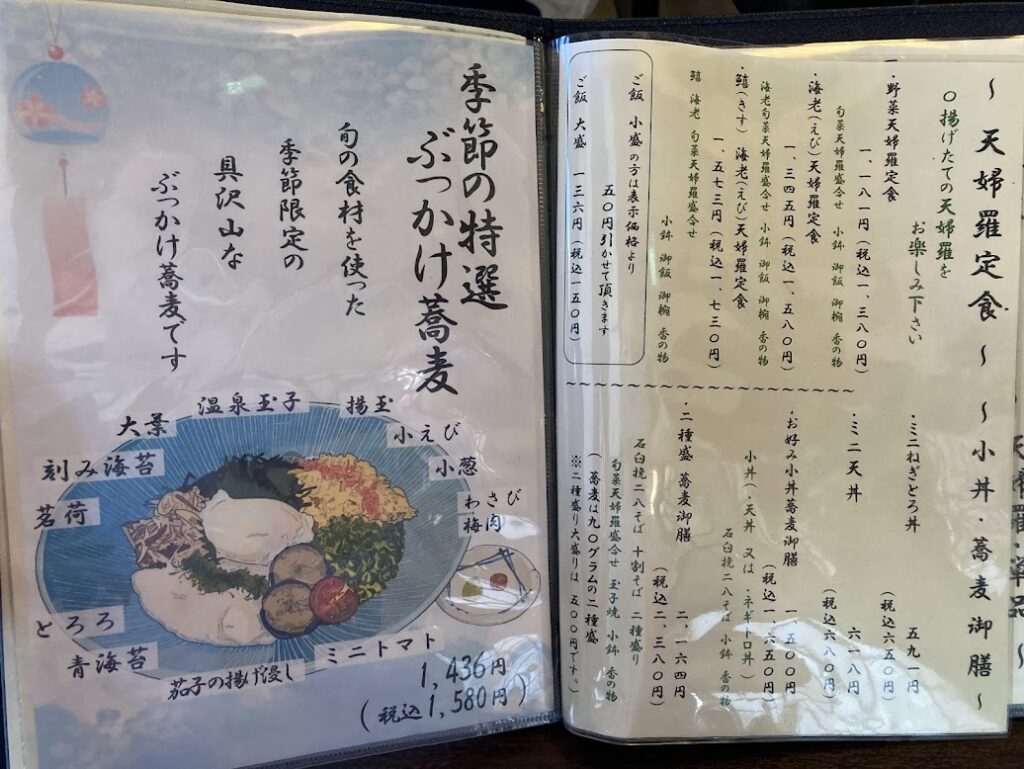 季節の特選
ぶっかけ蕎麦
旬の食材を使った
季節限定の
具沢山な
ぶっかけ蕎麦です
温泉玉子
揚玉
大葉
小えび
刻み海苔
小葱
茗荷
わさび
梅肉
とろろ
青海苔
茄子の揚げ浸し
ミニトマト
1,436円
(税込1,580円)
～天婦羅定食～
○揚げたての天婦羅を
お楽しみ下さい
・野菜天婦羅定食
一、一八一円(税込一、三八〇円)
旬菜天婦羅盛合せ 小鉢 御飯 御椀 香の物
・海老(えび)天婦羅定食
一、三四五円(税込一、五八〇円)
海老旬菜天婦羅盛合せ 小鉢 御飯 御椀 香の物
・鱚(きす)海老(えび)天婦羅定食
一、五七三円(税込一、七三〇円)
鱚 海老 旬菜天婦羅盛合せ
小鉢 御飯 御椀 香の物
ご飯 小盛の方は表示価格より
五〇円引かせて頂きます
ご飯 大盛 一三六円(税込一五〇円)
～小丼・蕎麦御膳～
・ミニねぎとろ丼
五九一円
(税込六五〇円)
・ミニ天丼
六一八円
(税込六八〇円)
・お好み小丼蕎麦御膳
一、五〇〇円
(税込一、六五〇円)
小丼(・天丼 又は ・ネギトロ丼)
石臼挽二八そば 小鉢 香の物
・二種盛 蕎麦御膳
二、一六四円
(税込二、三八〇円)
石臼挽二八そば 十割そば 二種盛り
旬菜天婦羅盛合せ 玉子焼 小鉢 香の物
(蕎麦は九〇グラムの二種盛
※二種盛り大盛りは 五〇〇円です。)